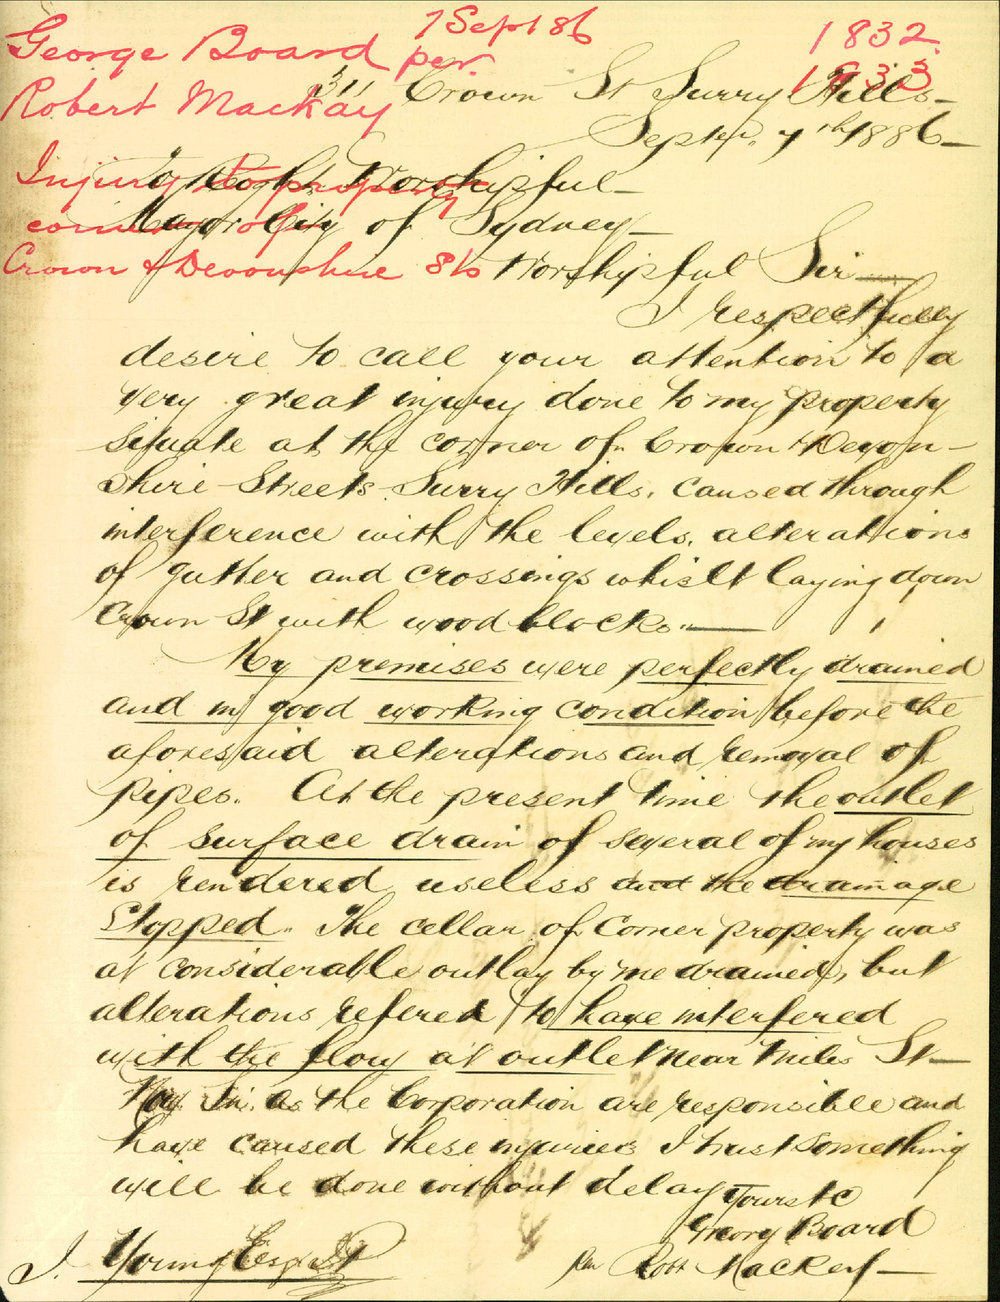 George Board 7 Sept 86 1832.
per. 1833
Robert Mackay
311 Crown St Surry Hills
Septr. 7th 1886
Injury to property
To Right Worshipful
corner of
Mayor City of Sydney
Crown & Devonshire Sts
Worshipful Sir
I respectfully
desire to call your attention to a
very great injury done to my property
situate at the corner of Crown & Devon-
shire Streets Surry Hills. caused through
interference with the levels, alterations
of gutter and crossings whislt laying down
Crown St with wood blocks.
My premises were perfectly drained
and in good working condition before the
aforesaid alterations and removal of
pipes. At the present time the outlet
of surface drain of several of my houses
is rendered useless and the drainage
Stopped. The cellar of Corner property was
at considerable outlay by me drained, but
alterations refered to have interfered
with the flow at outlet near Miles St
Now Sir. as the Corporation are responsible and
have caused these injuries I trust something
will be done without delay
Yours &c
Board
J. Young Esq. J.P
per Robt Mackay